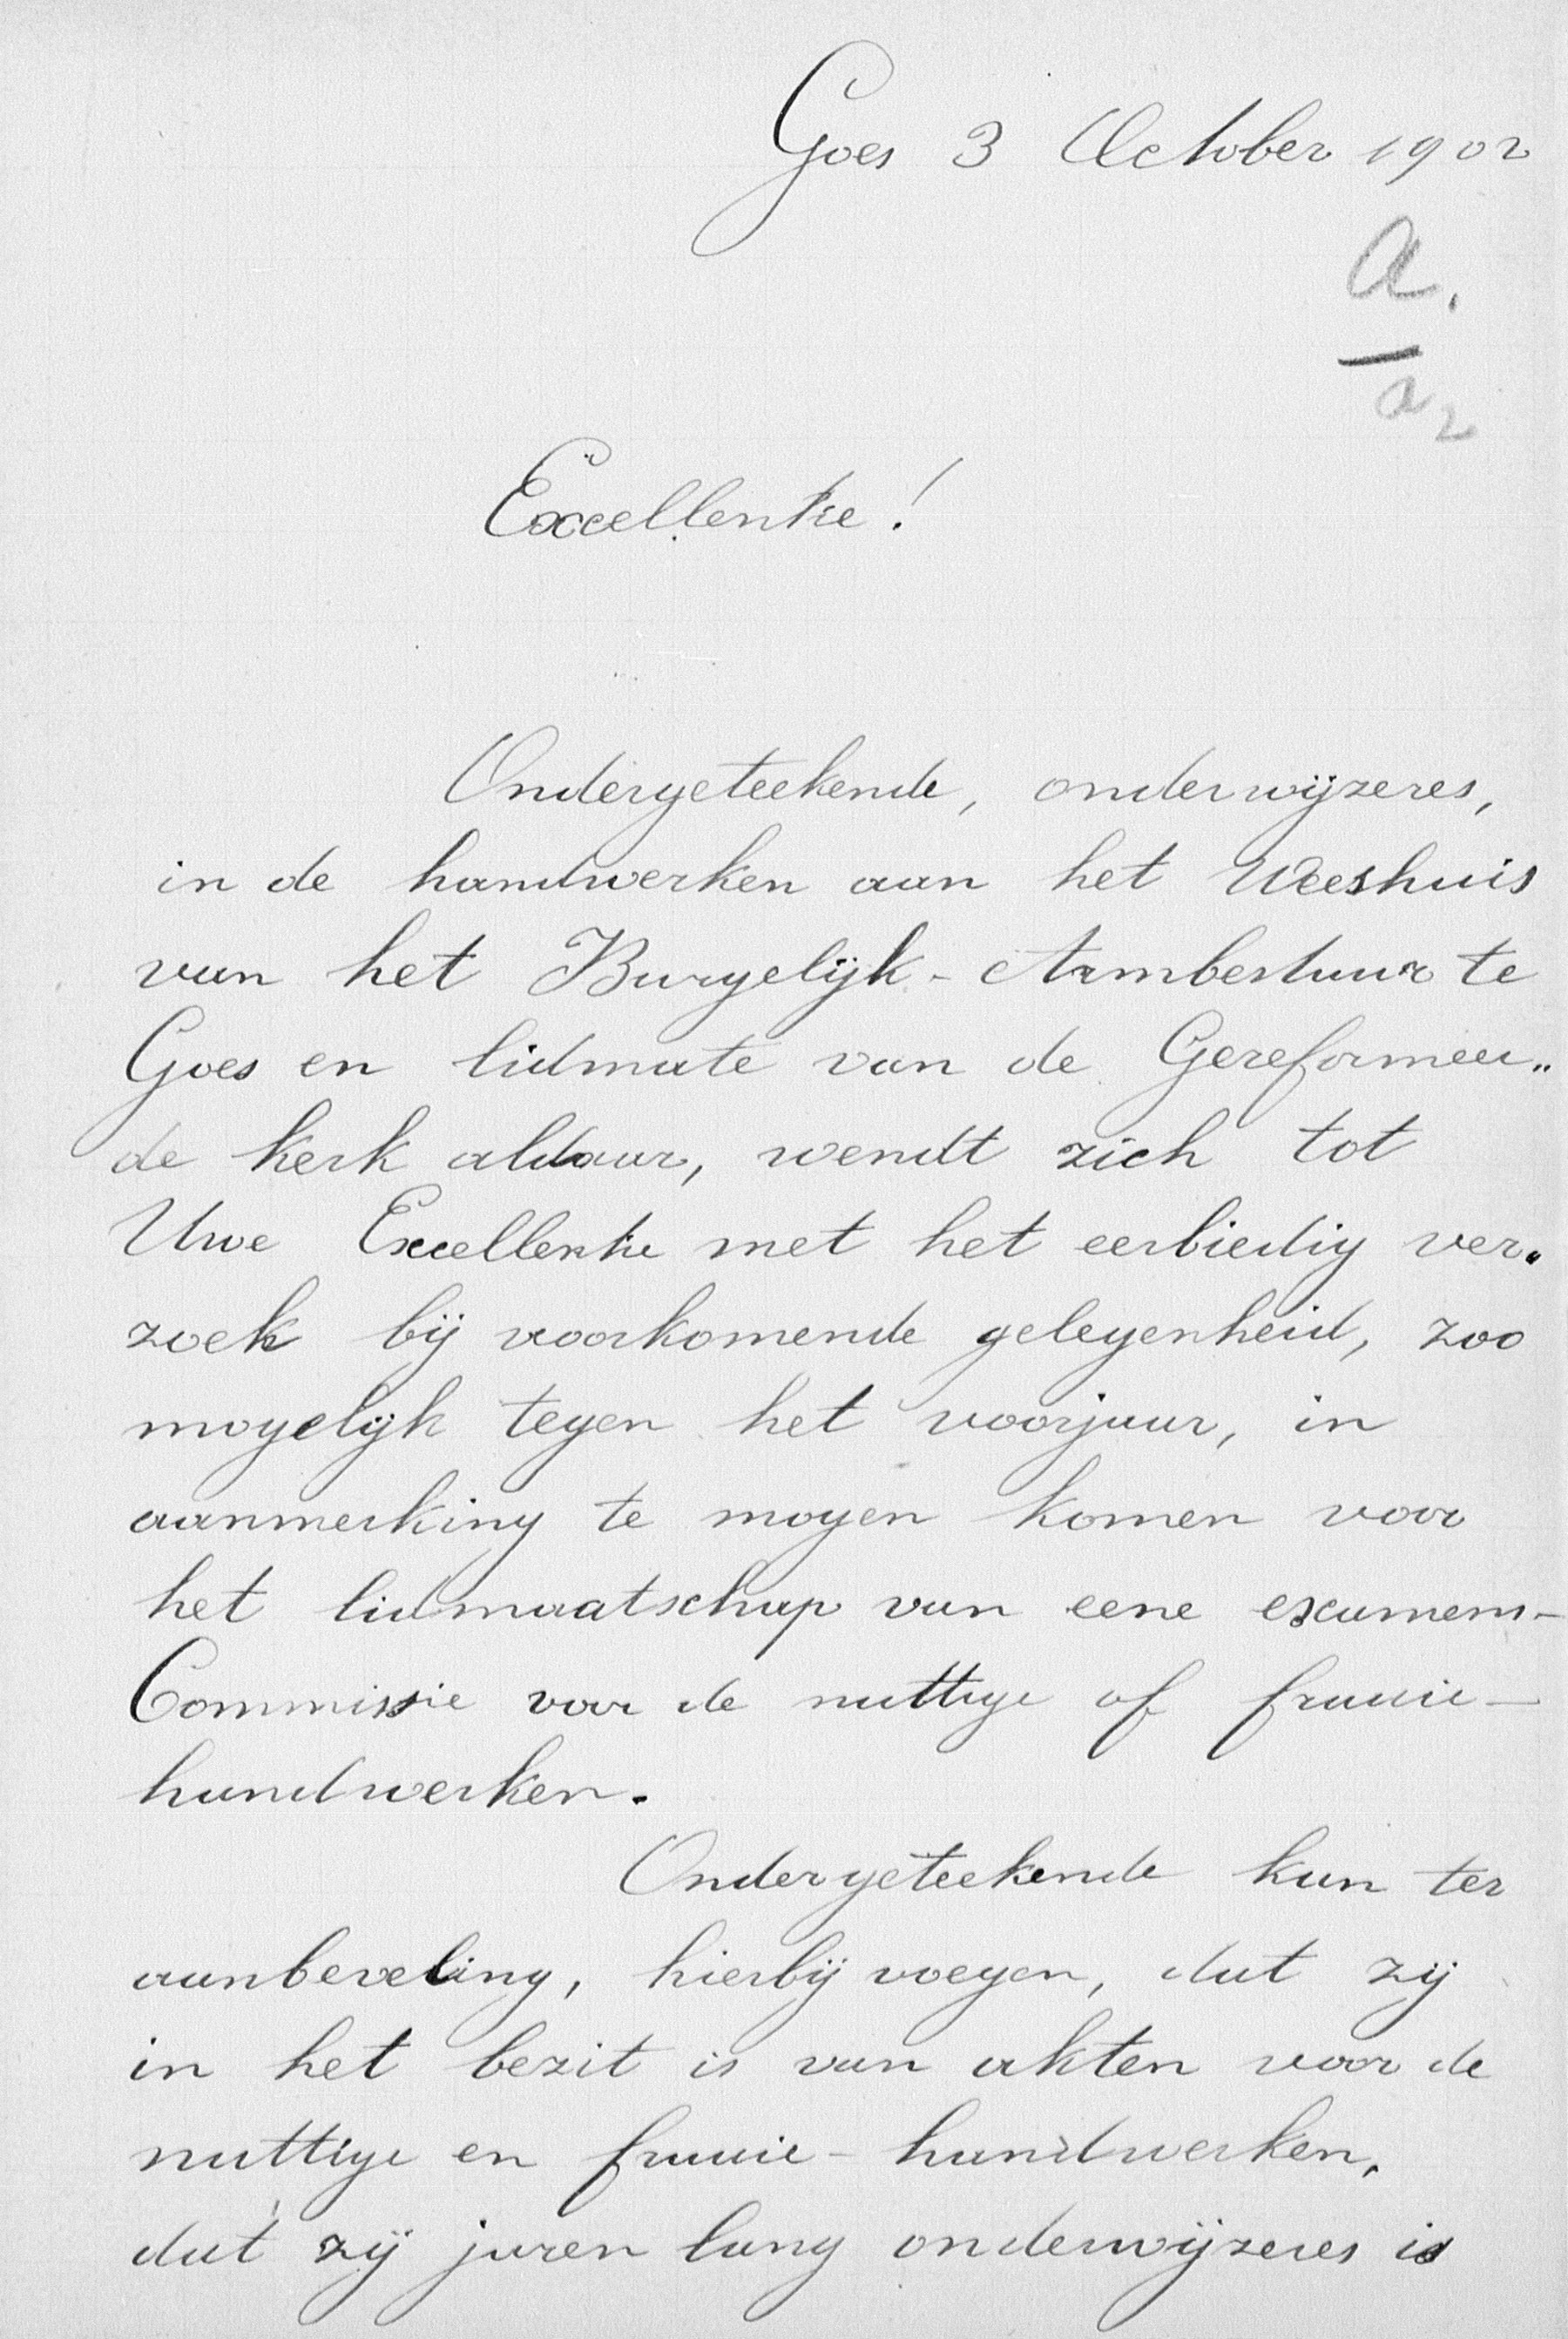 Goes 3 October 1902
a.
a 2
Excellentie!
Ondergeteekende, onderwijzeres,
in de handwerken aan het Weeshuis
van het Burgelijk-Armbestuur te
Goes en lidmate van de Gereformeer„
de kerk aldaar, wendt zich tot
Uwe Excellentie met het eerbiedig ver„
zoek bij voorkomende gelegenheid, zoo
mogelijk tegen het voorjaar, in
aanmerking te mogen komen voor
het lidmaatschap van eene examens-
Commissie voor de nuttige of fraaie-
handwerken.
Ondergeteekende kan ter
aanbeveling, hierbij voegen, dat zij
in het bezit is van akten voor de
nuttige en fraaie-handwerken,
dat zij jaren lang onderwijzeres is